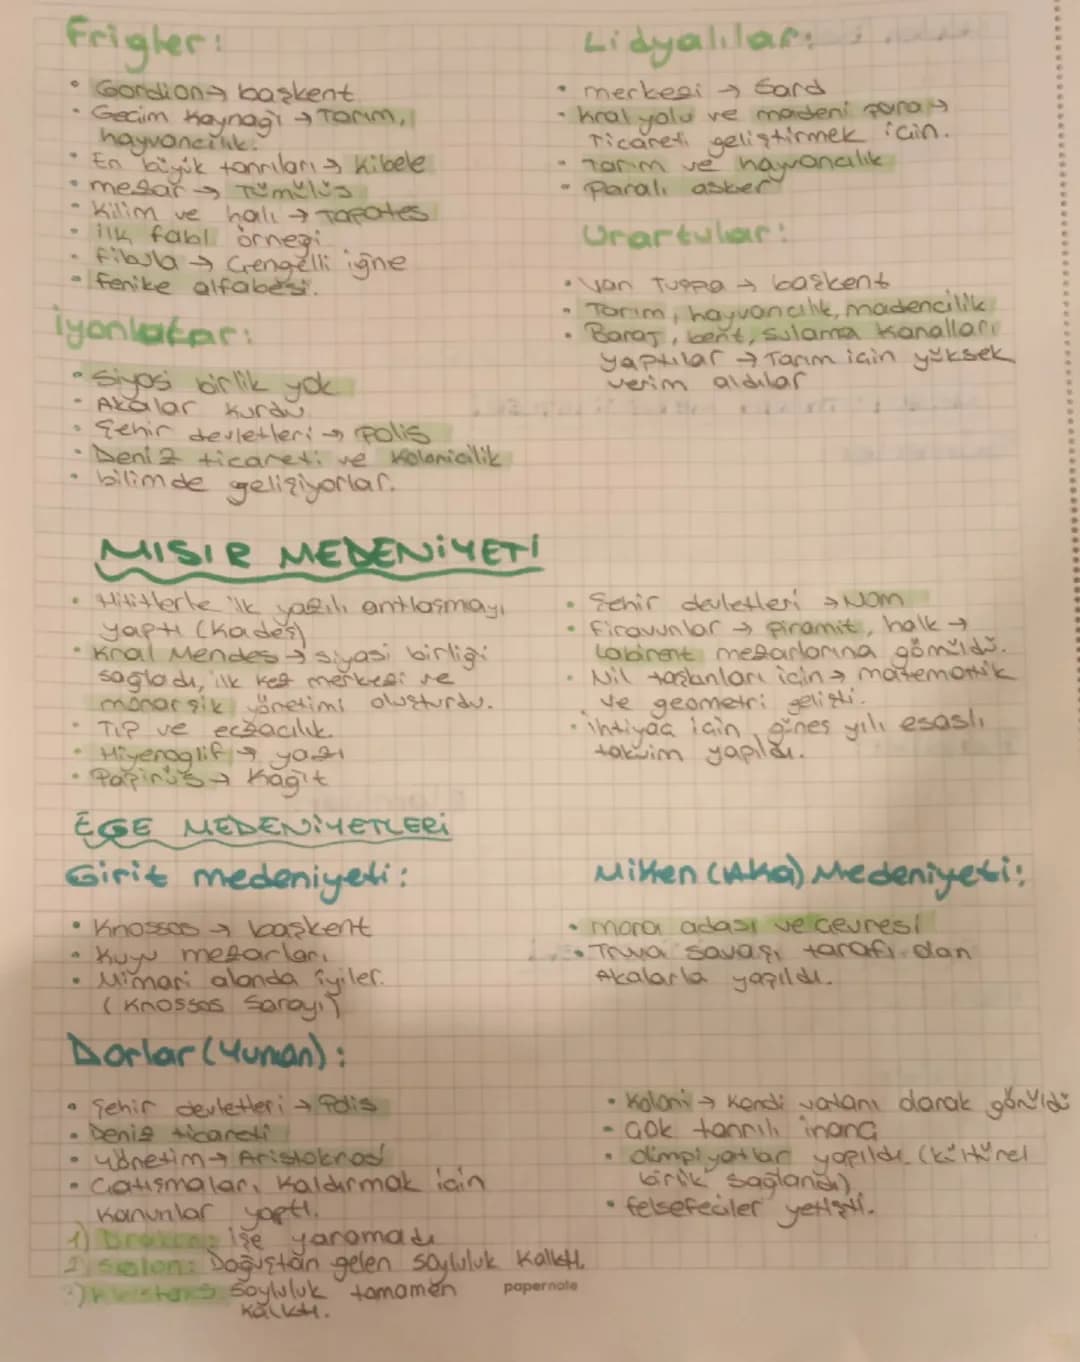 Frigler:
• Gordion → başkent
• Geçim kaynağı → Tarım,
hayvancılık.
• En büyük tanrıları → Kibele
• mezar → Tümülüs
• Kilim ve halı → Tapates
• ilk fabl örneği
• Fibula → Çengelli iğne
• Fenike alfabesi.
İyonlar:
• Siyasi birlik yok
• Akalar kurdu
• Şehir devletleri → Polis
• Deniz ticareti ve Kolonicilik
• bilimde gelişiyorlar.
Lidyalılar:
• merkezi → Sard
• kral yolu ve madeni para →
Ticareti geliştirmek için.
• Tarım ve hayvancılık
• Paralı asker
Urartular:
• Van Tuşpa → başkent
• Tarım, hayvancılık, madencilik
• Baraj, bent, sulama kanalları
yaptılar → Tarım için yüksek
verim aldılar
MISIR MEDENİYETİ
• Hititlerle ilk yazılı antlaşmayı
yaptı (Kadeş)
• Kral Mendes → siyasi birliği
sağladı, ilk kez merkezi ve
monarşik yönetimi oluşturdu.
• TIP ve eczacılık.
• Hiyeroglif → yazı
• Papirüs → Kağıt
• Şehir devletleri → Nom
• Firavunlar → piramit, halk →
Labirent mezarlarına gömüldü.
• Nil taşkınları için → matematik
ve geometri gelişti.
• ihtiyaç için güneş yılı esaslı
takvim yapıldı.
EGE MEDENİYETLERİ
Girit medeniyeti:
• Knossos → başkent
• Kuyu mezarları
• Mimari alanda iyiler.
(Knossos Sarayı)
Miken (Aka) Medeniyeti:
• mora adası ve çevresi
• Truva savaşı tarafı olan
Akalarla yapıldı.
Dorlar (Yunan):
• Şehir devletleri → Polis
• Deniz ticareti
• Yönetim → Aristokrasi
• Çatışmaları kaldırmak için
kanunlar yaptı.
1) Drakon: işe yaramadı
2) Solon: Doğuştan gelen soyluluk kalktı.
3) Soyluluk tamamen
kalktı.
• Koloni → Kendi vatanı olarak görüldü
• Çok tanrılı inanç
• Olimpiyatlar yapıldı. (kültürel
birlik sağlandı)
• felsefeciler yetişti.
papernote